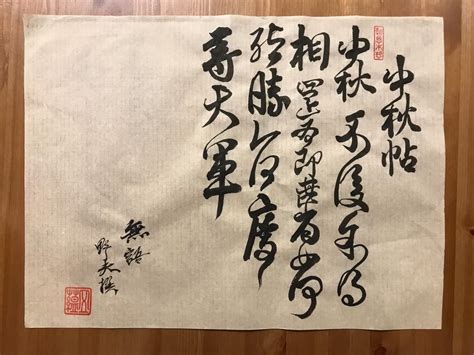 中秋帖
中秋不復不得
相還為即甚省如何
然勝人何慶
等大軍
無語
野夫撰